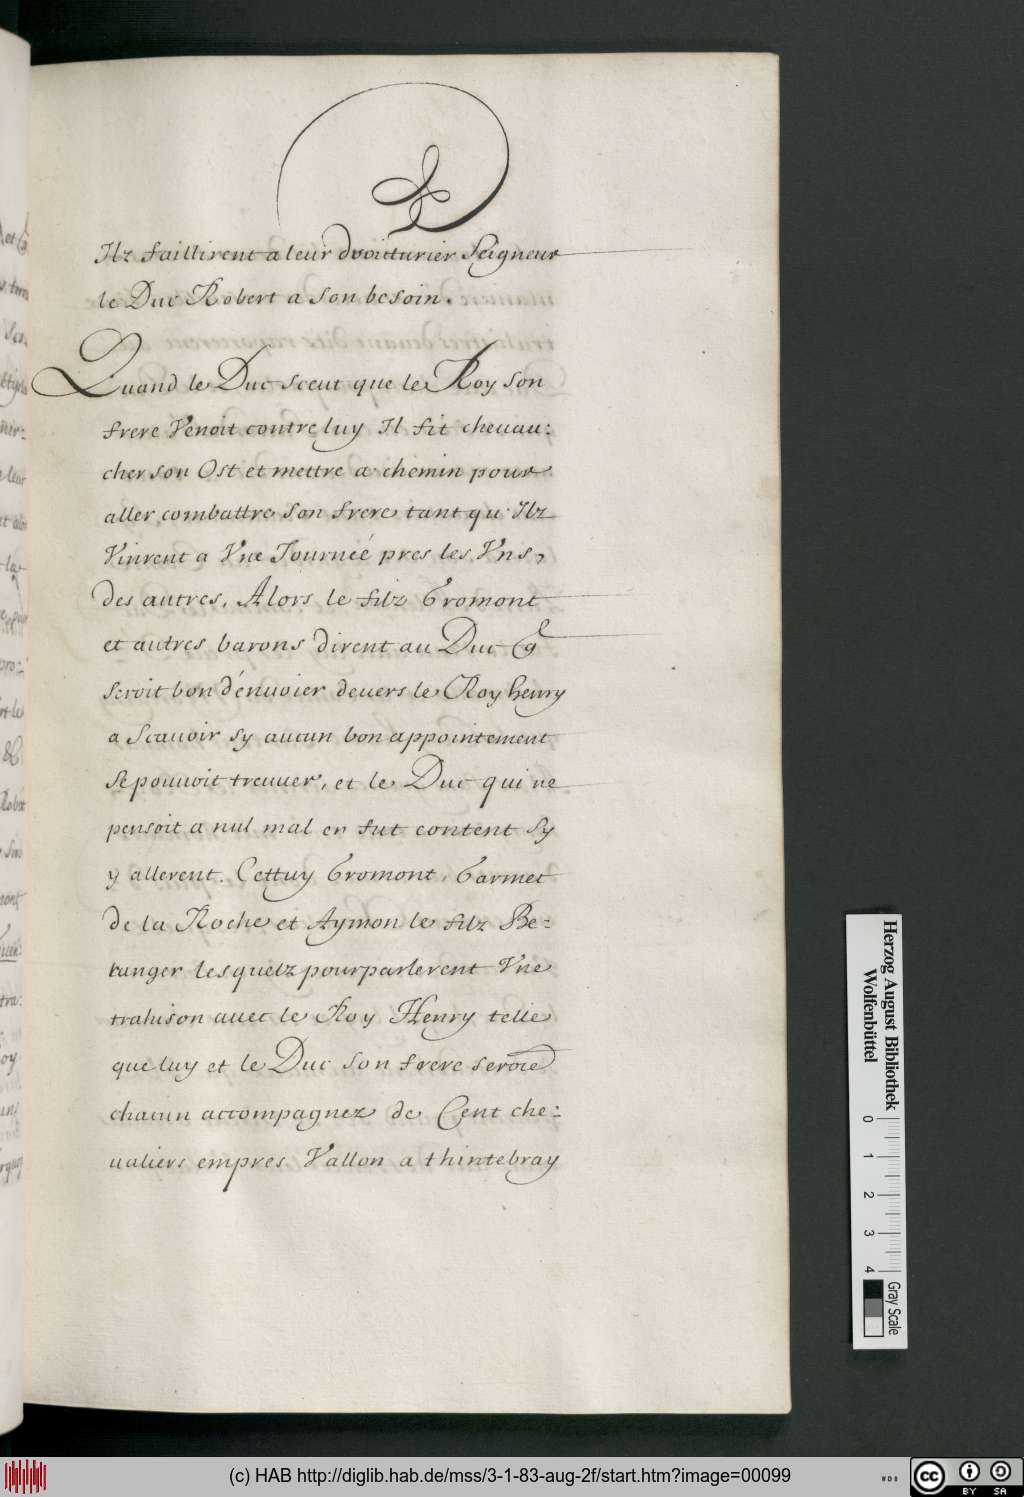 Ilz faillirent a leur droitturier Seigneur
le Duc Robert a son besoin.
Quand le Duc sceut que le Roy son
frere Venoit contre luy Il fit cheuau:
cher son Ost et mettre a chemin pour
aller combattre son frere tant qu'Ilz
Vinrent a Vne Journeé pres les Vns,
des autres, Alors le filz Gromont
et autres barons dirent au Duc q
seroit bon d'énuoier deuers le Roy henry
a Scauoir sy aucun bon appointement
se pouuoit treuuer, et le Duc qui ne
pensoit a nul mal en fut content sy
y allerent. Cettuy Gromont, Garmet
de la Roche et Aymon le filz Be=
ranger lesquelz pourparlerent Vne
trahison auec le Roy Henry telle
que luy et le Duc son frere seroiẽ
chacun accompagnez de Cent che=
ualiers empres Vallon a thintebray
Herzog August Bibliothek
Wolfenbüttel
0 1 2 3 4
Gray Scale
(c) HAB http://diglib.hab.de/mss/3-1-83-aug-2f/start.htm?image=00099
cc BY SA